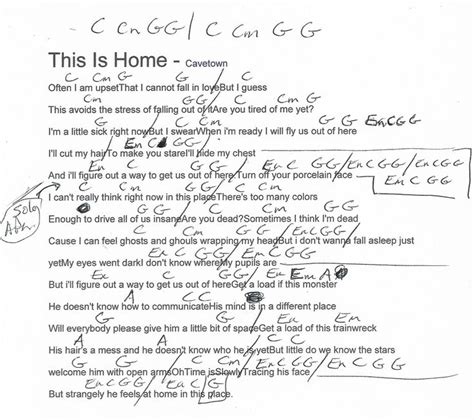 - C Cm G G / C Cm G G
This Is Home - Cavetown
C Cm G G C
Often I am upsetThat I cannot fall in loveBut I guess
Cm G G C Cm
This avoids the stress of falling out of itAre you tired of me yet?
G G C Cm G G Em C G G
I'm a little sick right nowBut I swearWhen i'm ready I will fly us out of here
Em C G G
I'll cut my hairTo make you stareI'll hide my chest
Em C G G Em C G G / Em C G G / Em C G G
And i'll figure out a way to get us out of here Turn off your porcelain face
Em C G G
C Cm G G C
I can't really think right now in this placeThere's too many colors
Solo
G G C Cm G G
Enough to drive all of us insaneAre you dead?Sometimes I think I'm dead
C Cm G G
Cause I can feel ghosts and ghouls wrapping my headBut i don't wanna fall asleep just
Em C G G Em C G G
yetMy eyes went darkI don't know whereMy pupils are
Em C G G Em A
But i'll figure out a way to get us out of hereGet a load if this monster
A C C
He doesn't know how to communicateHis mind is in a different place
G G Em Em
Will everybody please give him a little bit of spaceGet a load of this trainwreck
A A C Cm
His hair's a mess and he doesn't know who he is yetBut little do we know the stars
G G C Cm Em C G G Em C G G
welcome him with open armsOhTime isSlowlyTracing his face
Em C G G Em C G
But strangely he feels at home in this place.